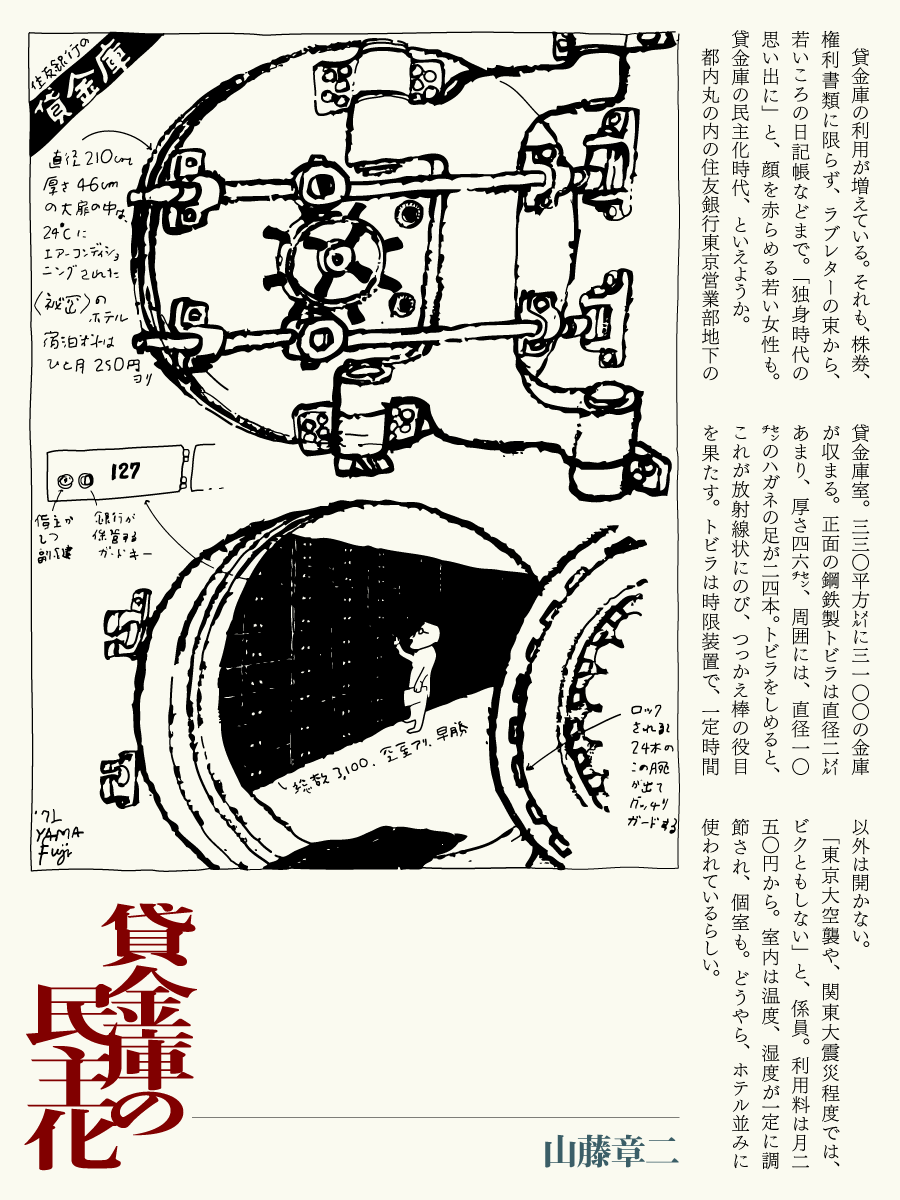 貸金庫の利用が増えている。それも、株券、
権利書類に限らず、ラブレターの束から、
若いころの日記帳などまで。「独身時代の
思い出に」と、顔を赤らめる若い女性も。
貸金庫の民主化時代、といえようか。
都内丸の内の住友銀行東京営業部地下の
貸金庫室。三三〇平方㍍に三一〇〇の金庫
が収まる。正面の鋼鉄製トビラは直径二㍍
あまり、厚さ四六㌢、周囲には、直径一〇
㌢のハガネの足が二四本。トビラをしめると、
これが放射線状にのび、つっかえ棒の役目
を果たす。トビラは時限装置で、一定時間
以外は開かない。
「東京大空襲や、関東大震災程度では、
ビクともしない」と、係員。利用料は月二
五〇円から。室内は温度、湿度が一定に調
節され、個室も。どうやら、ホテル並みに
使われているらしい。
住友銀行の
貸金庫
直径210cm
厚さ46cm
の大扉の中は
24℃に
エアーコンディショ
ニングされた
〈秘密〉の
ホテル
宿泊料は
ひと月250円
ヨリ
127
借主が
もつ
副鍵
銀行が
保管する
ガードキー
総数3,100. 空室アリ. 早勝
ロック
されると
24本の
この腕
が出て
ガッチリ
ガードする
'71
YAMA
Fuji
貸金庫の
民主化
山藤章二